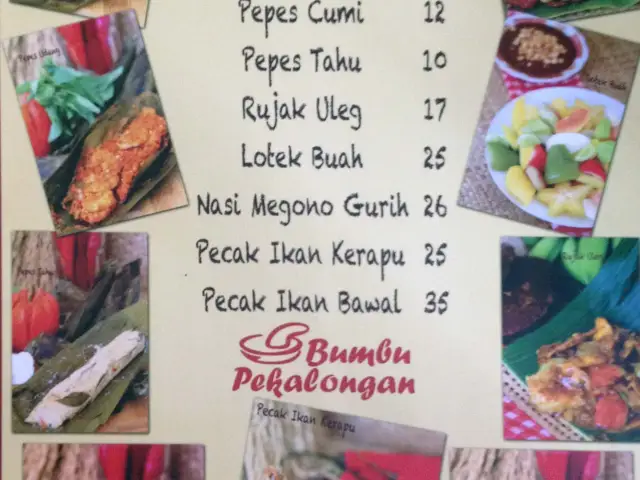 Pepes Cumi 12
Pepes Udang
Pepes Tahu 10
Rujak Uleg 17
Lotek Buah
Lotek Buah 25
Nasi Megono Gurih 26
Pecak Ikan Kerapu 25
Pepes Tahu
Rujak Uleg
Pecak Ikan Bawal 35
Bumbu
Pekalongan
Pecak Ikan Kerapu